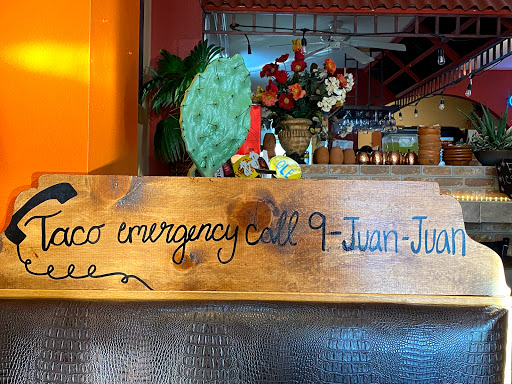 Taco emergency call 9-Juan-Juan